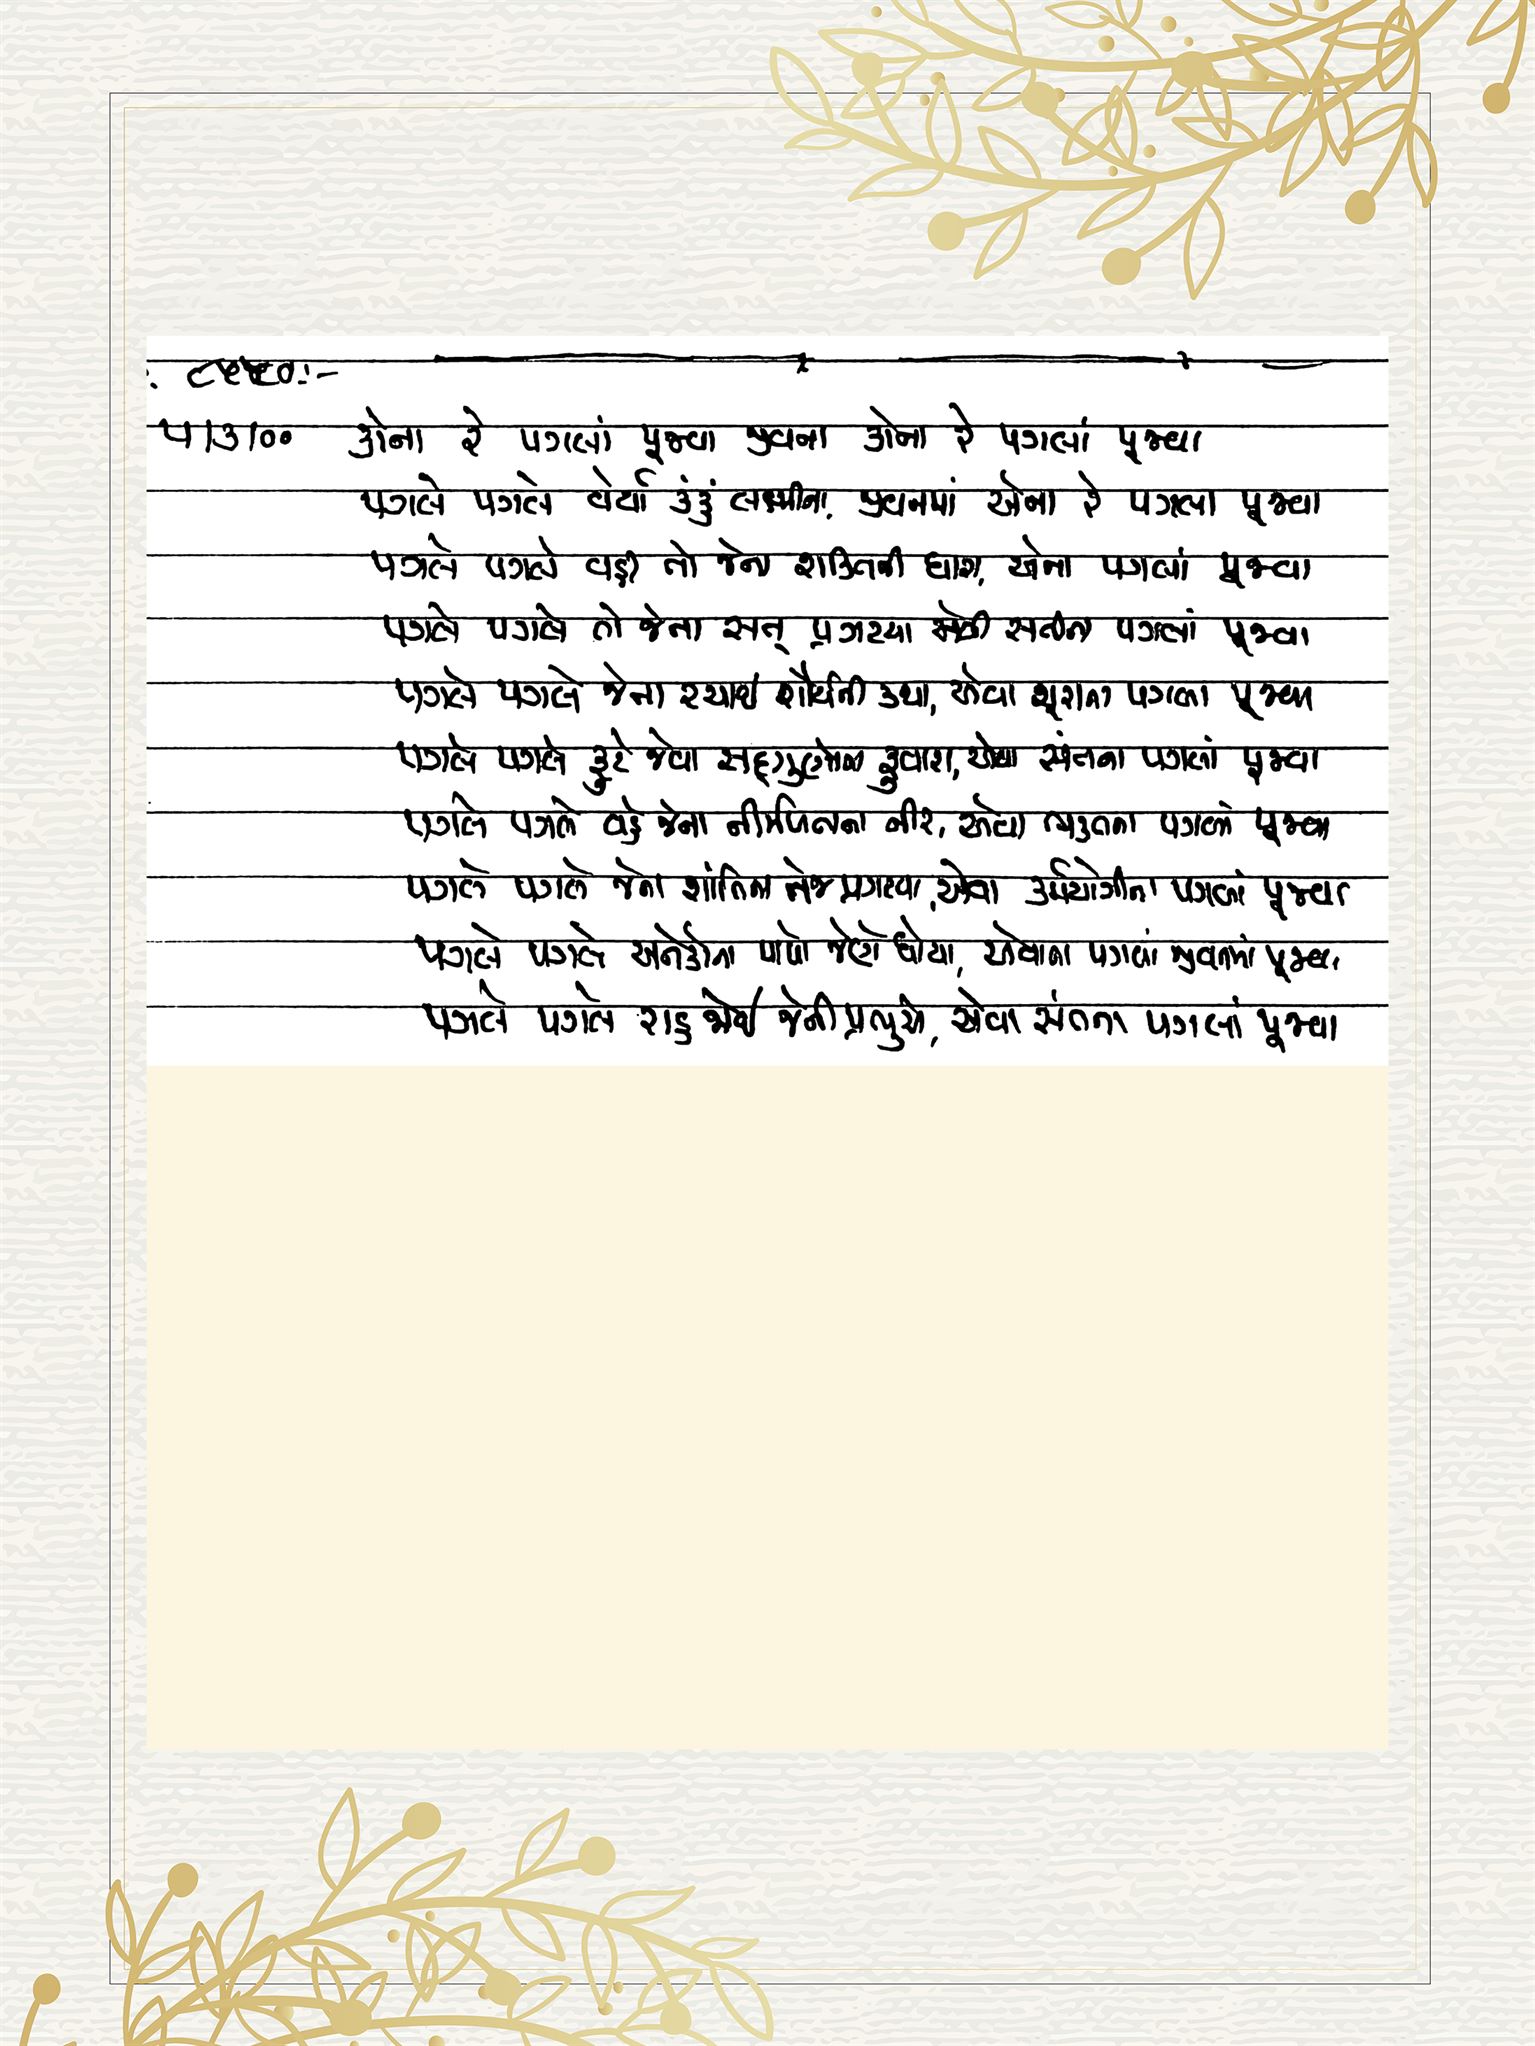 કોના રે પગલાં પૂજવા જીવનમાં કોના રે પગલાં પૂજવા
પગલે પગલે વેર્યા કંકું લક્ષ્મીના, જીવનમાં એના રે પગલા પૂજવા
પગલે પગલે વહી તો જેના શક્તિની ધારા, એના પગલાં પૂજવા
પગલે પગલે તો જેના સત્ પ્રગટયા સતીના પગલાં પૂજવા
પગલે પગલે જેના રચાઈ શૌર્યની કથા, એવા શૂરાના પગલા પૂજવા
પગલે પગલે ફુટે જેવા સદ્દગુણોના ફુવારા, એવા સંતના પગલાં પૂજવા
પગલે પગલે વહે જેના નીર્મળતાના નીર, એવા ભક્તના પગલાં પૂજવા
પગલે પગલે જેના શાંતિના તેજ પ્રગટયા, એવા કર્મયોગીના પગલાં પૂજવા
પગલે પગલે અનેકોના પાપો જેણે ધોયા, એવાના પગલાં જીવનમાં પૂજવા
પગલે પગલે રાહ જોઈ જેની પ્રભુએ, એવા સંતના પગલાં પૂજવા